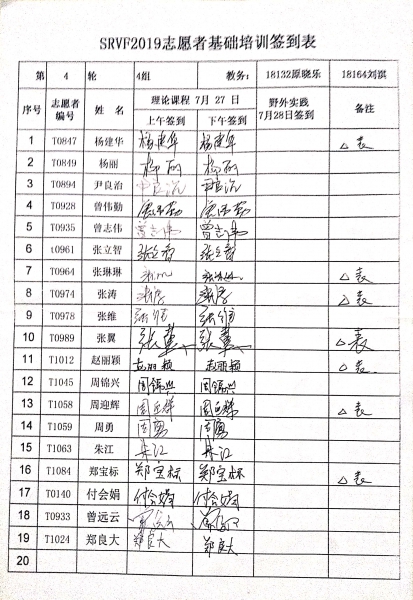 SRVF2019志愿者基础培训签到表
第 4 轮 4组 教务: 18132原晓乐 18164刘淇
序号 志愿者编号 姓名 理论课程 7月 27 日 上午签到 下午签到 野外实践 7月28日签到 备注
1 T0847 杨建华 杨建华 杨建华 △ 表
2 T0849 杨丽 杨丽 杨丽
3 T0894 尹良治 尹良治 尹良治
4 T0928 曾伟勤
5 T0935 曾志伟 曾志伟 曾志伟
6 t0961 张立智 张立智 张立智
7 T0964 张琳琳 △ 表
8 T0974 张涛 张涛 张涛 △ 表
9 T0978 张维 张维 张维
10 T0989 张翼 张翼 张翼 △ 表
11 T1012 赵丽颖 赵丽颖 赵丽颖 △ 表
12 T1045 周锦兴 周锦兴 周锦兴
13 T1058 周迎辉 周迎辉 周迎辉 △ 表
14 T1059 周勇 周勇 周勇
15 T1063 朱江 朱江 朱江
16 T1084 郑宝标 郑宝标 郑宝标 △ 表
17 T0140 付会娟 付会娟 付会娟
18 T0933 曾远云
19 T1024 郑良大 郑良大 郑良大
20